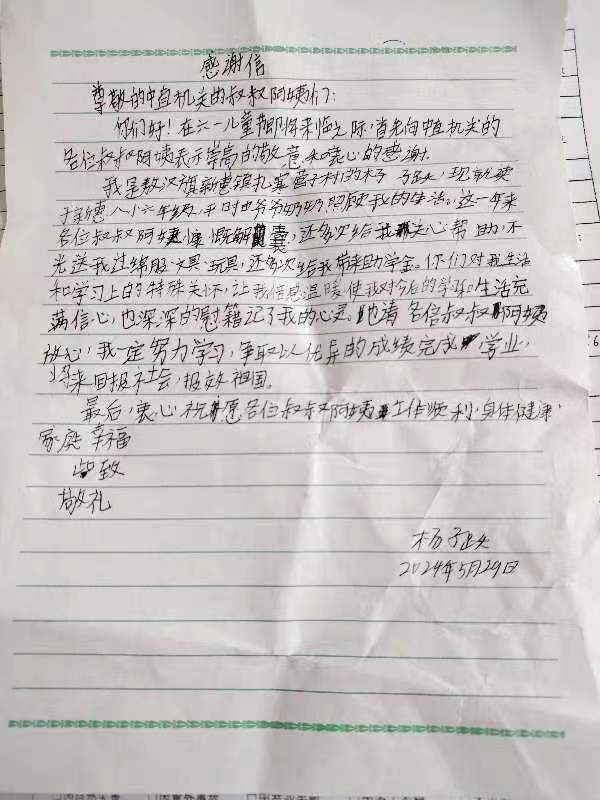 感谢信
尊敬的中直机关的叔叔阿姨们：
你们好！在六一儿童节即将来临之际，首先向中直机关的
各位叔叔阿姨表示崇高的敬意和衷心的感谢.
我是敖汉旗新惠镇扎寨营子村的杨子, 现就读
于新惠八小六年级，平时由爷爷奶奶照顾我的生活。这一年来
各位叔叔阿姨慷慨解囊，还多次给我关心帮助，不
光送我过绵服、文具、玩具，还多次给我带来助学金。你们对我生活
和学习上的特殊关怀，让我倍感温暖使我对今后的学习。生活充
满信心，也深深的慰籍了我的心灵。也请各位叔叔阿姨
放心，我一定努力学习，争取以优异的成绩完成学业，
将来回报社会，报效祖国。
最后，衷心祝愿各位叔叔阿姨工作顺利，身体健康，
家庭幸福
此致
敬礼
杨子
2024年5月29日